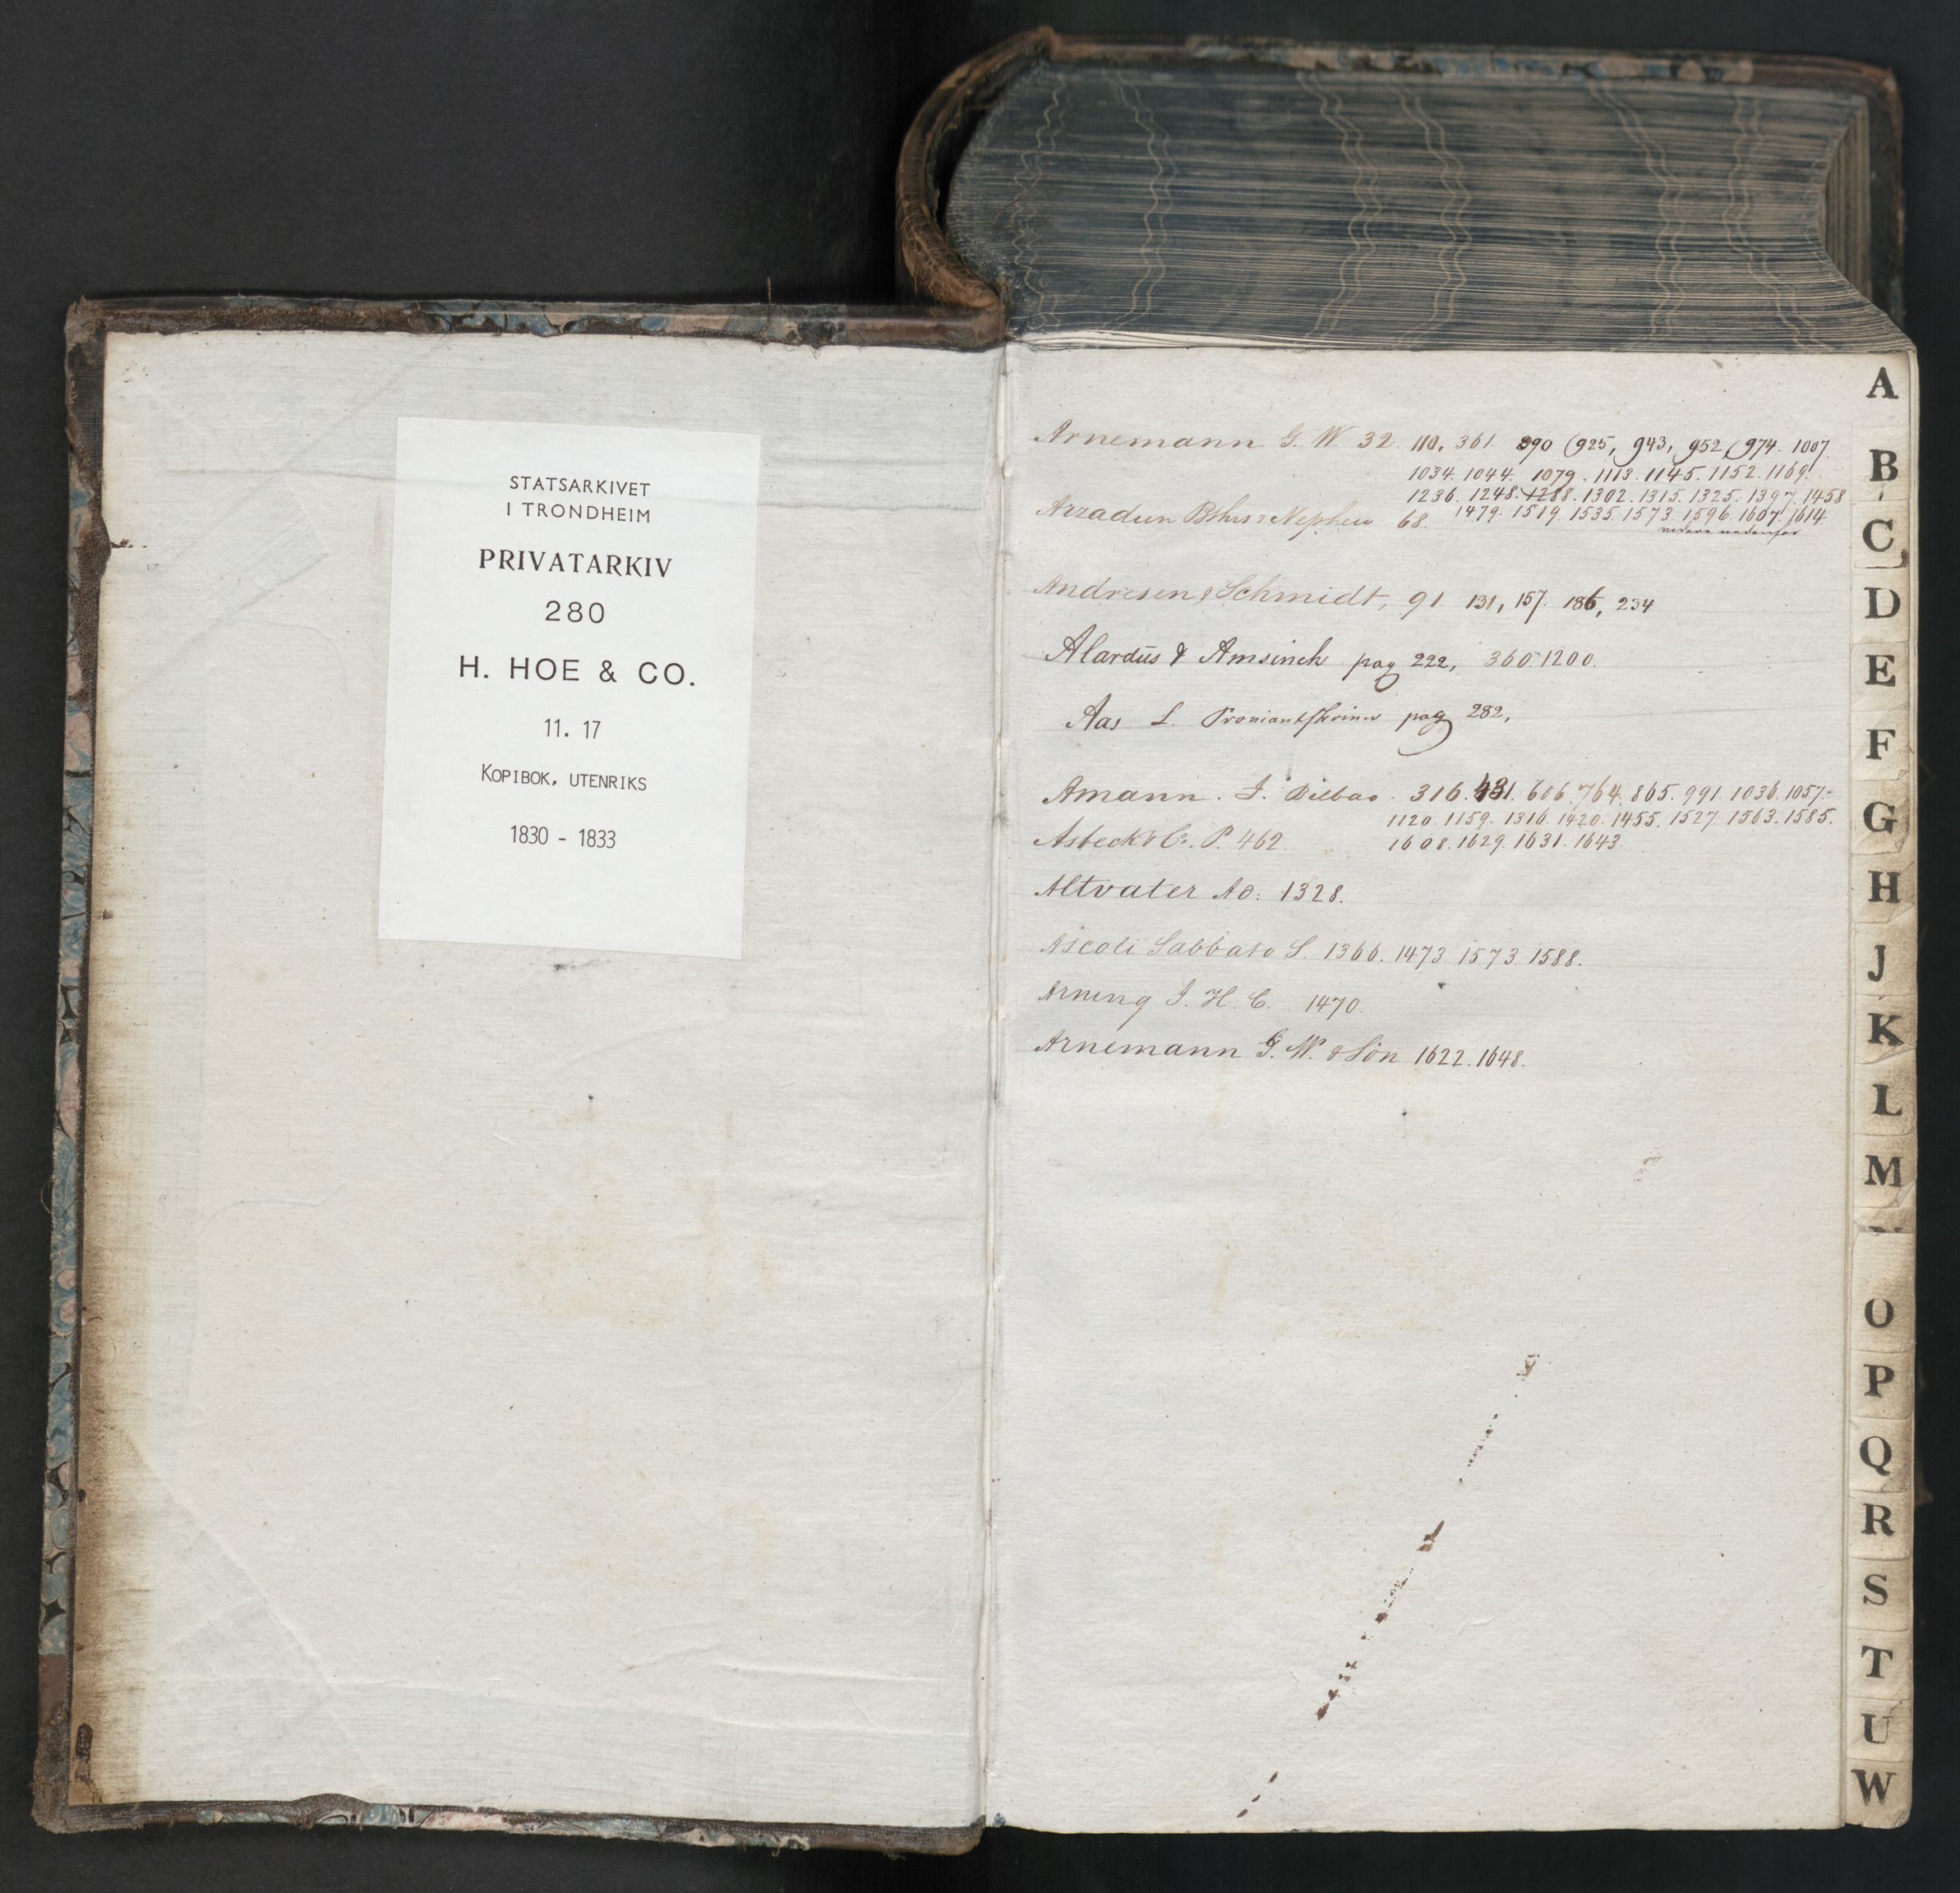 STATSARKIVET
I TRONDHEIM
PRIVATARKIV
280
H. HOE & CO.
11. 17
KOPIBOK, UTENRIKS
1830 - 1833
Arnemann G. W 32. 110, 361. 890 925, 943, 952, 974. 1007.
1034. 1044. 1079. 1113. 1145. 1152. 1169.
1236. 1248. 1288. 1302. 1315. 1325. 1397. 1458
1479. 1519. 1535. 1573. 1596. 1607. 1614.
videre nedenfor
Nepheu 68.
Andresen & Schmidt, 91. 131, 157. 186, 234
Alardus & Amsinck pag 222, 360. 1200.
Aas L. pag 282,
Amann. J. Bilbao. 316. 431. 606. 764. 865. 991. 1036. 1057.
1120. 1159. 1316. 1420. 1455. 1527. 1563. 1585.
1608. 1629. 1631. 1643.
Asbeck & Co. P. 462.
Altvater Ad. 1328.
Ascoli Sabbato S. 1366. 1473. 1573. 1588.
Arning J. H. C. 1470.
Arnemann G. W. & Sön 1622. 1648.
A
B
C
D
E
F
G
H
J
K
L
M
O
P
Q
R
S
T
U
W